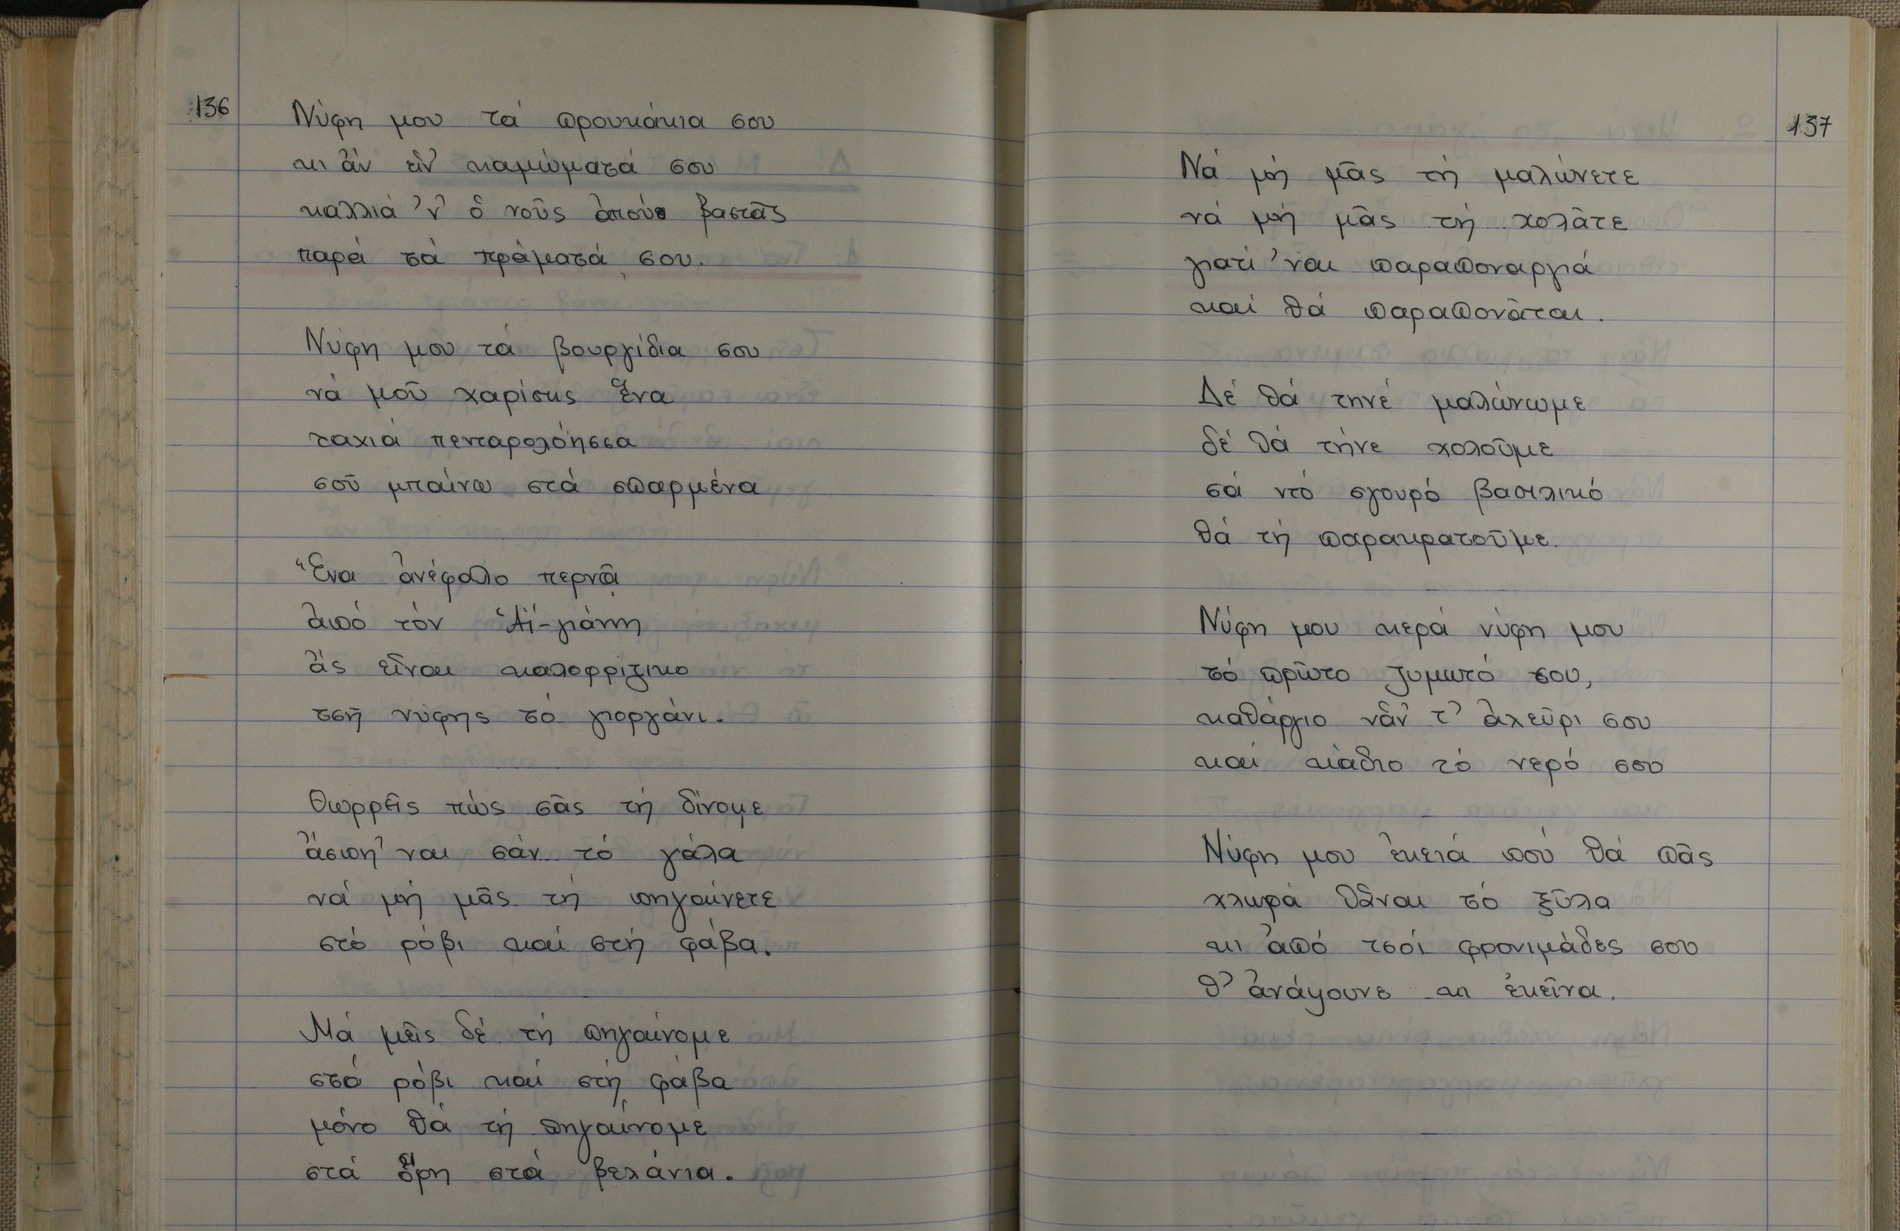 136
Νύφη μου τά προυκάκια σου
κι ἄν εἶν' καμώματά σου
καλλιά 'ν' ὁ νοῦς ἀπού βαστᾶς
παρά τά πράματά σου.
Νύφη μου τά βουργίδια σου
νά μοῦ χαρίσης ἕνα
ταχιά πενταρολόησσα
σοῦ μπαίνω στά σπαρμένα
Ἕνα ἀνέφαλο περνᾶ
ἀπό τόν Ἁϊ-γιάννη
ἄς εἶναι καλορρίζικο
τσῆ νύφης τό γιοργάνι.
Θωρρεῖς πώς σᾶς τή δίνομε
ἄσπρη 'ναι σάν τό γάλα
νά μή μᾶς τή πηγαίνετε
στό ρόβι καί στή φάβα.
Μά μεῖς δέ τή πηγαίνομε
στό ρόβι καί στή φάβα
μόνο θά τή πηγαίνομε
στά ὄρη στά βελάνια.
137
Νά μή μᾶς τή μαλώνετε
νά μή μᾶς τή χολᾶτε
γιατί 'ναι παραποναργιά
καί θά παραπονᾶται.
Δέ θά τηνέ μαλώνωμε
δέ θά τήνε χολοῦμε
σά ντό σγουρό βασιλικό
θά τή παρακρατοῦμε.
Νύφη μου κερά νύφη μου
τό πρῶτο ζυμωτό σου,
καθάργιο νἆν' τ' ἀλεῦρι σου
καί κιάδιο τό νερό σου
Νύφη μου ἐκειά πού θά πᾶς
χλωρά θἆναι τό ξύλα
κι ἀπό τσοί φρονιμάδες σου
θ' ἀνάψουνε κι ἐκεῖνα.